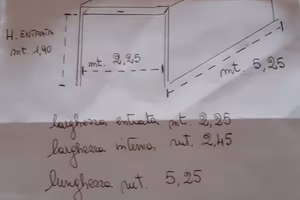 H. ENTRATA
mt 1,90
mt. 2,25
mt. 5,25
larghezza entrata mt. 2,25
larghezza interna mt. 2,45
lunghezza mt. 5,25